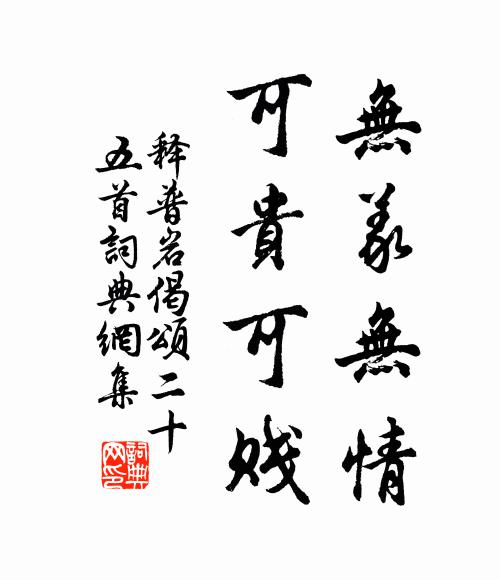 無義無情
可貴可賤
释普岩偈頌二十
五首詞典網集
詞典
网印